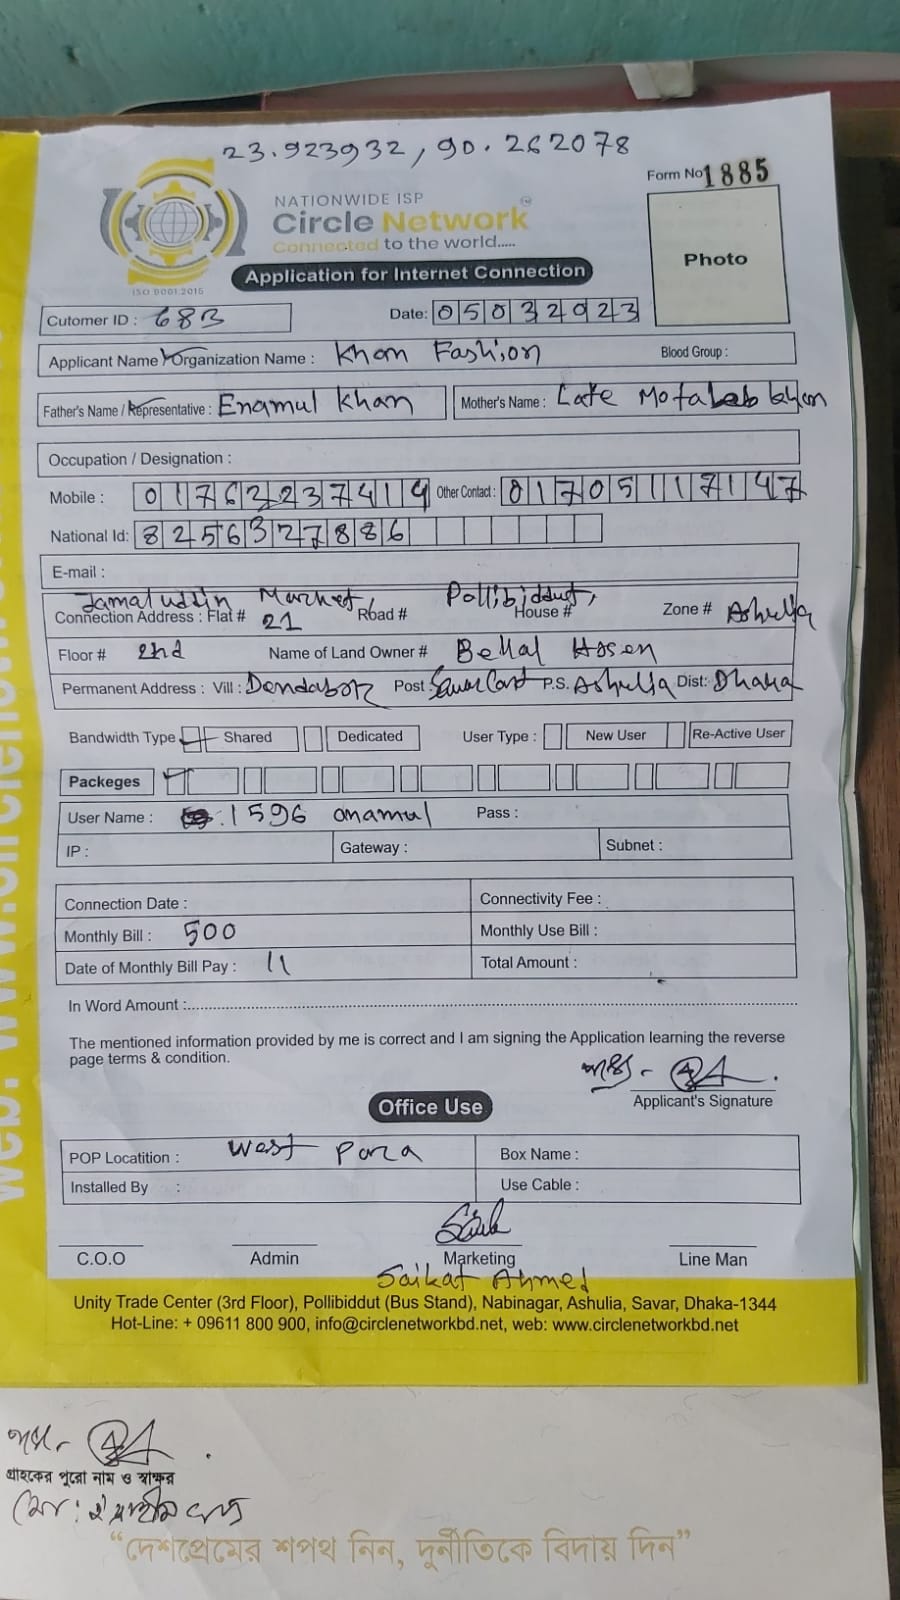 23.923932, 90.262078
Form No 1885
NATIONWIDE ISP
Circle Network
Connected to the world.....
ISO 9001:2015
Photo
Application for Internet Connection
Cutomer ID : 683
Date: 05032023
Applicant Name / Organization Name : Khan Fashion Blood Group :
Father's Name / Representative : Enamul Khan Mother's Name : Late Motaleb Khan
Occupation / Designation :
Mobile : Other Contact : 01705117147
National Id: 8256327886
E-mail :
Jamaluddin Market, Pollibiddut,
Connection Address : Flat # 21 Road # House # Zone # Ashulia
Floor # 2nd Name of Land Owner # Bellal Hosen
Permanent Address : Vill : Dendabor Post : Savar Cant P.S. Ashulia Dist: Dhaka
Bandwidth Type Shared Dedicated User Type : New User Re-Active User
Packeges
User Name : 1596 anamul Pass :
IP : Gateway : Subnet :
Connection Date : Connectivity Fee :
Monthly Bill : 500 Monthly Use Bill :
Date of Monthly Bill Pay : 11 Total Amount :
In Word Amount :
The mentioned information provided by me is correct and I am signing the Application learning the reverse
page terms & condition.
Applicant's Signature
Office Use
POP Locatition : West Para Box Name :
Installed By : Use Cable :
C.O.O Admin Marketing Line Man
Saikat Ahmed
Unity Trade Center (3rd Floor), Pollibiddut (Bus Stand), Nabinagar, Ashulia, Savar, Dhaka-1344
Hot-Line: + 09611 800 900, info@circlenetworkbd.net, web: www.circlenetworkbd.net
গ্রাহকের পুরো নাম ও স্বাক্ষর
“দেশপ্রেমের শপথ নিন, দুর্নীতিকে বিদায় দিন”